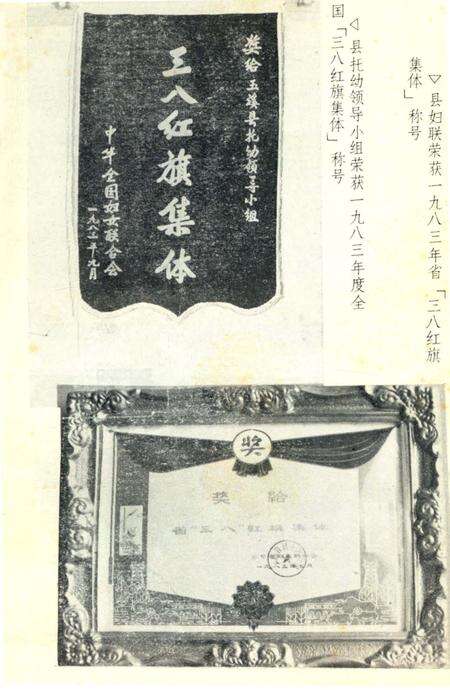 ▽县妇联荣获一九八三年省「三八红旗
集体」称号
◁县托幼领导小组荣获一九八三年度全
国「三八红旗集体」称号
奖给玉溪县托幼领导小组
三八红旗集体
中华全国妇女联合会
一九八三年九月
奖
奖给
省"三八"红旗集体